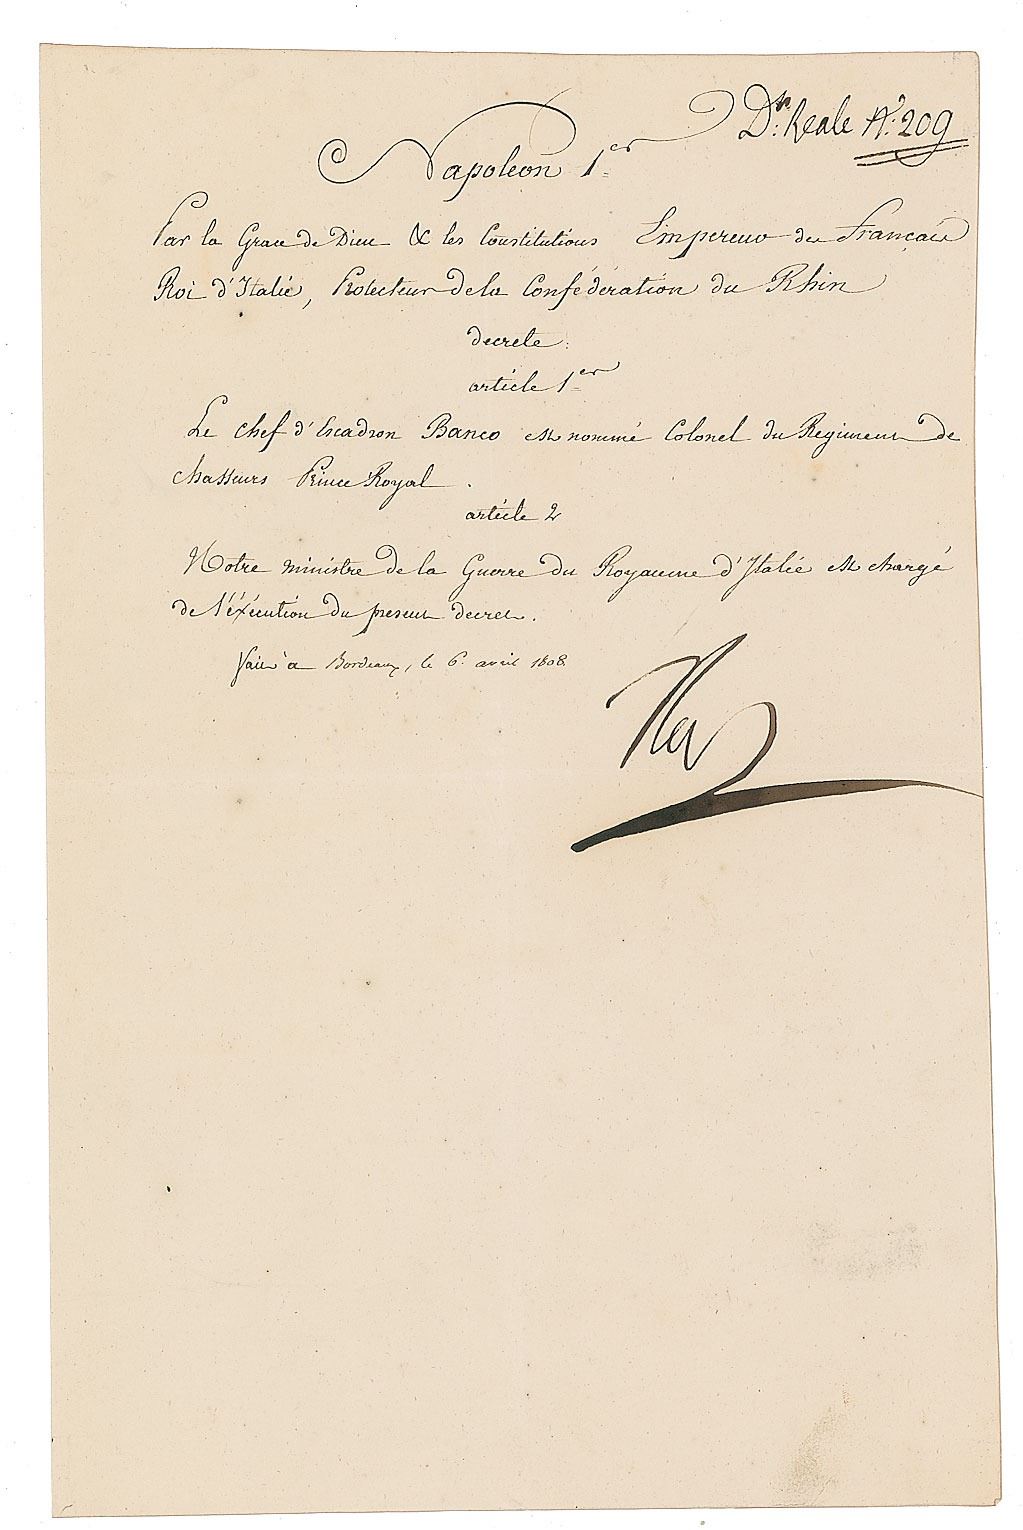 Dto. Reale No. 209
Napoleon 1er
Par la Grace de Dieu & les Constitutions Empereur des Français
Roi d'Italie, Protecteur de la Confédération du Rhin
decrete:
article 1er
Le chef d'Escadron Banco est nommé Colonel du Regiment de
chasseurs Prince Royal.
article 2
Notre ministre de la Guerre du Royaume d'Italie est chargé
de l'éxécution du present decret.
Fait à Bordeaux, le 6. avril 1808
Nap